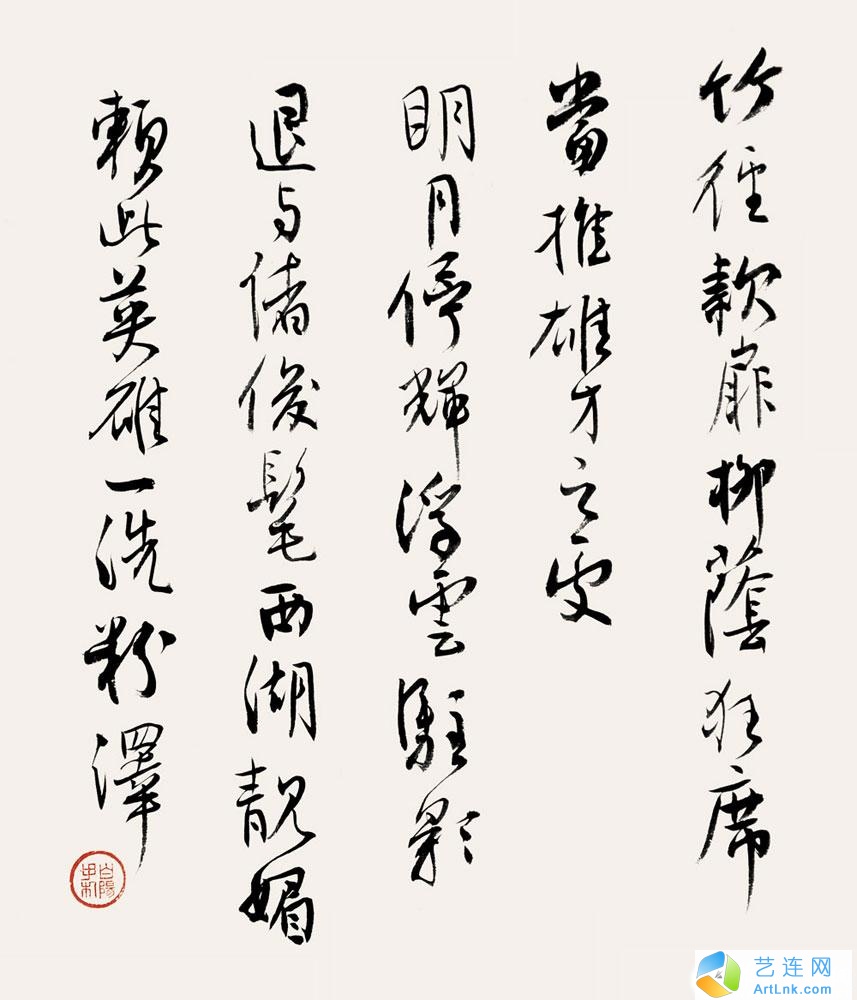 竹徑款扉柳蔭狂席
當推雄才之雯
明月停輝浮雲駐影
退与儲俊髦西湖靓媚
賴此英雄一洗粉澤
艺连网
ArtLnk.com